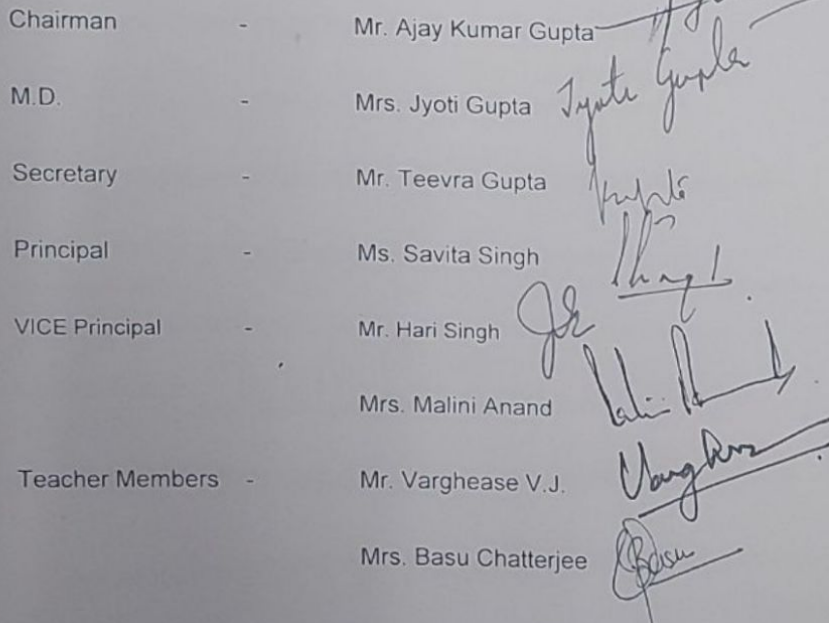 Chairman - Mr. Ajay Kumar Gupta
M.D. - Mrs. Jyoti Gupta Jyoti Gupta
Secretary - Mr. Teevra Gupta
Principal - Ms. Savita Singh
VICE Principal - Mr. Hari Singh
Mrs. Malini Anand
Teacher Members - Mr. Varghease V.J.
Mrs. Basu Chatterjee Basu